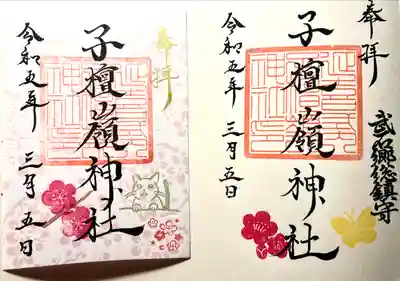 奉拝
子檀嶺神社
令和五年 三月 五日
奉拝
武郷総鎮守
子檀嶺神社
令和五年 三月 五日